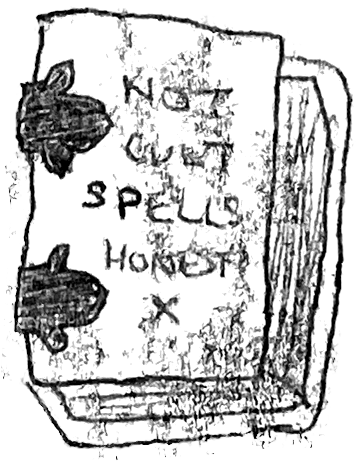 NOT
CULT
SPELLS
HONEST
X